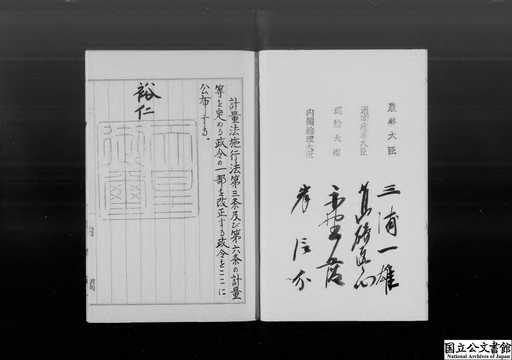 農林大臣
三浦一雄
通商産業大臣
高碕達之助
運輸大臣
永野護
内閣総理大臣
岸信介
計量法施行法第三条及び第六条の計量
等を定める政令の一部を改正する政令をここに
公布する。
裕仁
天皇
御璽
国立公文書館
National Archives of Japan